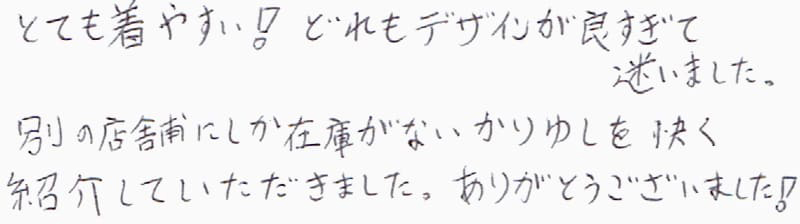 とても着やすい！どれもデザインが良すぎて
迷いました。
別の店舗にしか在庫がないかりゆしを快く
紹介していただきました。ありがとうございました！